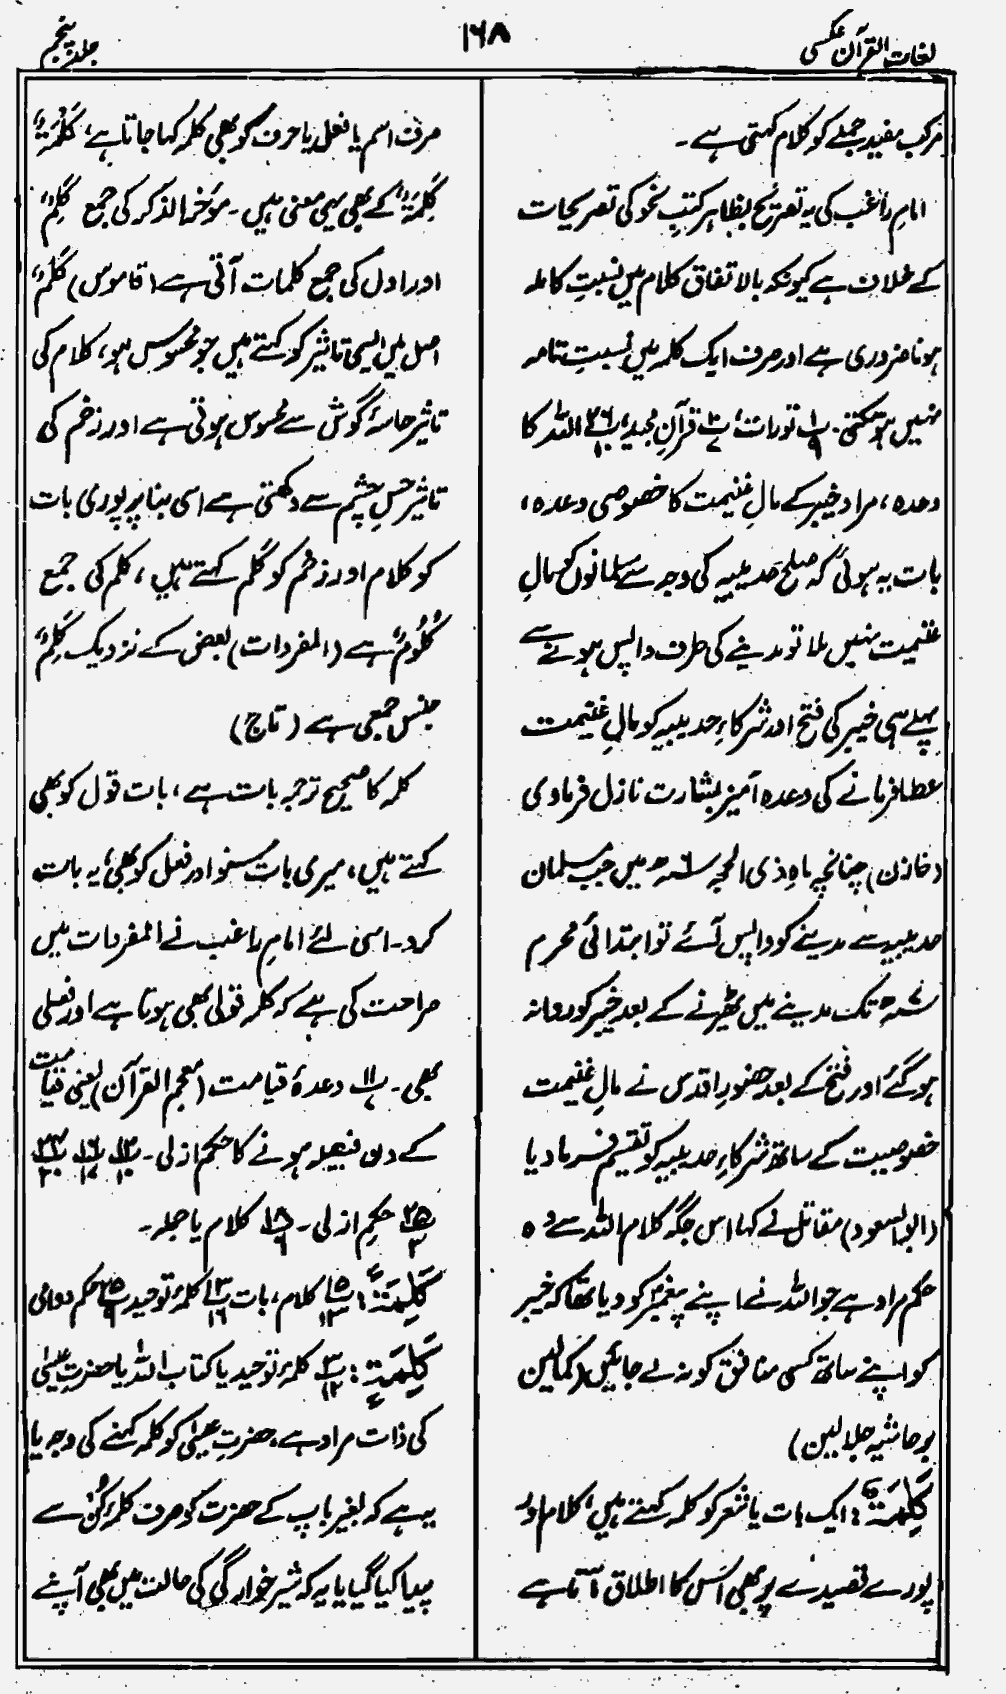 لغات القرآن عکسی
۱۶۸
جلد پنجم
مرکب مفید جملے کو کلام کہتی ہے۔
امام راغب کی یہ تصریح بظاہر کتبِ نحو کی تصریحات
کے خلاف ہے کیونکہ بالاتفاق کلام میں نسبتِ کاملہ
ہونا ضروری ہے اور صرف ایک کلمہ میں نسبتِ تامہ
نہیں ہوسکتی۔ پ۱/۹ تورات، پ قرآنِ مجید، پ۲۶/۱۰ اللہ کا
وعدہ، مراد خیبر کے مالِ غنیمت کا خصوصی وعدہ،
بات یہ ہوئی کہ صلح حدیبیہ کی وجہ سے مسلمانوں کو مالِ
غنیمت نہیں ملا تو مدینے کی طرف واپس ہونے سے
پہلے ہی خیبر کی فتح اور شرکاءِ حدیبیہ کو مالِ غنیمت
عطا فرمانے کی وعدہ آمیز بشارت نازل فرما دی
(خازن) چنانچہ ماہِ ذی الحجہ ۶ھ میں جب مسلمان
حدیبیہ سے مدینے کو واپس آئے تو ابتدائی محرم
۷ھ تک مدینے میں ٹھیرنے کے بعد خیبر کو روانہ
ہوگئے اور فتح کے بعد حضورِ اقدس نے مالِ غنیمت
خصوصیت کے ساتھ شرکاءِ حدیبیہ کو تقسیم فرما دیا
(ابوالسعود) مقاتل نے کہا اس جگہ کلام اللہ سے وہ
حکم مراد ہے جو اللہ نے اپنے پیغمبرؐ کو دیا تھا کہ خیبر
کو اپنے ساتھ کسی منافق کو نہ لے جائیں (کمالین
بر حاشیہ جلالین)
کَلِمَۃٌ: ایک بات یا شعر کو کلمہ کہتے ہیں، کلام اور
پورے قصیدے پر بھی اس کا اطلاق آتا ہے
صرف اسم یا فعل یا حرف کو بھی کلمہ کہا جاتا ہے، کَلْمَۃٌ،
کِلْمَۃٌ کے بھی یہی معنی ہیں۔ مؤخر الذکر کی جمع کِلَمٌ،
اور اول کی جمع کلمات آتی ہے (قاموس) کَلْمٌ،
اصل میں ایسی تاثیر کو کہتے ہیں جو محسوس ہو، کلام کی
تاثیر حاسۂ گوش سے محسوس ہوتی ہے اور زخم کی
تاثیر حسِ چشم سے دکھتی ہے اسی بنا پر پوری بات
کو کلام اور زخم کو کَلْم کہتے ہیں، کلم کی جمع
کُلُومٌ ہے (المفردات) بعض کے نزدیک کَلِمٌ
جنس جمعی ہے (تاج)
کلمہ کا صحیح ترجمہ بات ہے، بات قول کو بھی
کہتے ہیں، میری بات سنو اور فعل کو بھی، یہ بات
کرو۔ اسی لئے امام راغب نے المفردات میں
صراحت کی ہے کہ کلمہ قولی بھی ہوتا ہے اور فعلی
بھی۔ پ۱۱/۷ وعدۂ قیامت (معجم القرآن) یعنی قیامت
کے دن فیصلہ ہونے کا حکم ازلی۔ پ۱۲/۱۰ پ۱۶/۱۷ پ۲۴/۲۰
پ۲۵/۳ حکم ازلی۔ پ۱۸/۶ کلام یا جملہ۔
کَلِمَۃً: پ۱۵/۱۳ کلام، بات پ۱۳/۱۶ کلمۂ توحید پ۲۵/۹ حکم دوامی
کَلِمَۃٍ: پ۳/۱۲ کلمۂ توحید یا کتاب اللہ یا حضرتِ عیسیٰ
کی ذات مراد ہے، حضرتِ عیسیٰ کو کلمہ کہنے کی وجہ یا
یہ ہے کہ بغیر باپ کے حضرت کو صرف کلمۂ کُنْ سے
پیدا کیا گیا یا یہ کہ شیر خوارگی کی حالت میں بھی آپ نے